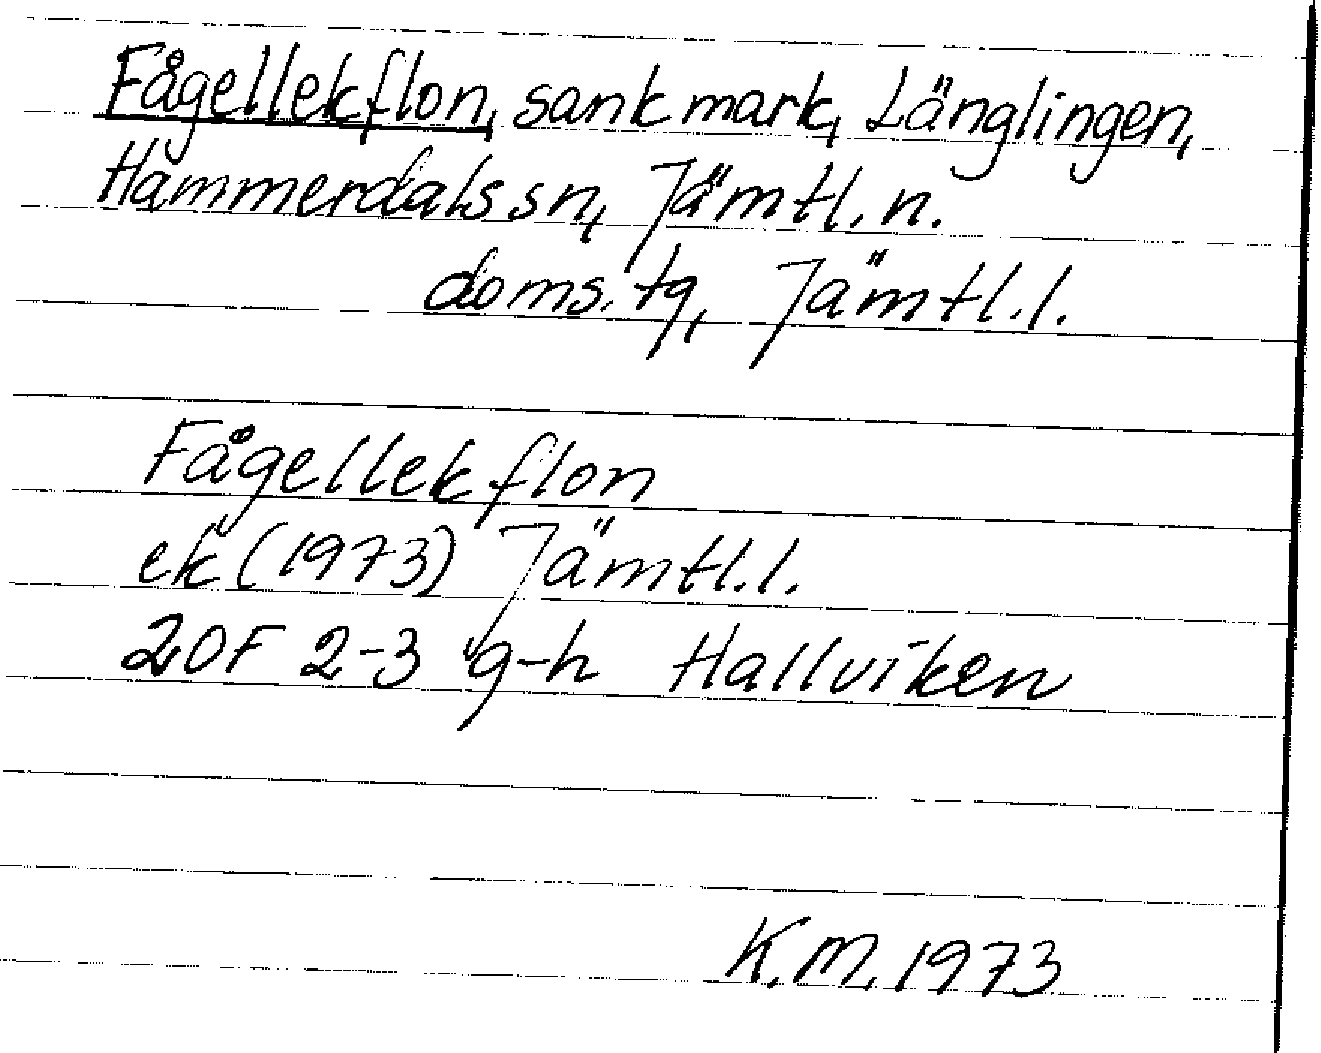 Fågellekflon, sank mark, Länglingen,
Hammerdals sn, Jämtl. n.
doms. tg, Jämtl. l.
Fågellekflon
ek (1973) Jämtl. l.
20F 2-3 g-h Hallviken
K.M. 1973